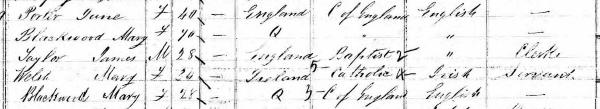 Porter Jane F 40 — England C of England English —
Blackwood Mary F 70 — Q " " —
Taylor James M 28 — England Baptist " Clerk
Welsh Mary F 24 — Ireland Catholic Irish Servant
Blackwood Mary F 28 — Q C of England English —